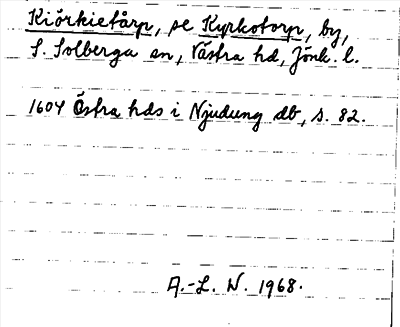 Kiörkietårp, se Kyrkotorp, by,
S. Solberga sn, Västra hd, Jönk. l.
1604 Östra hds i Njudung db, s. 82.
A.-L. N. 1968.